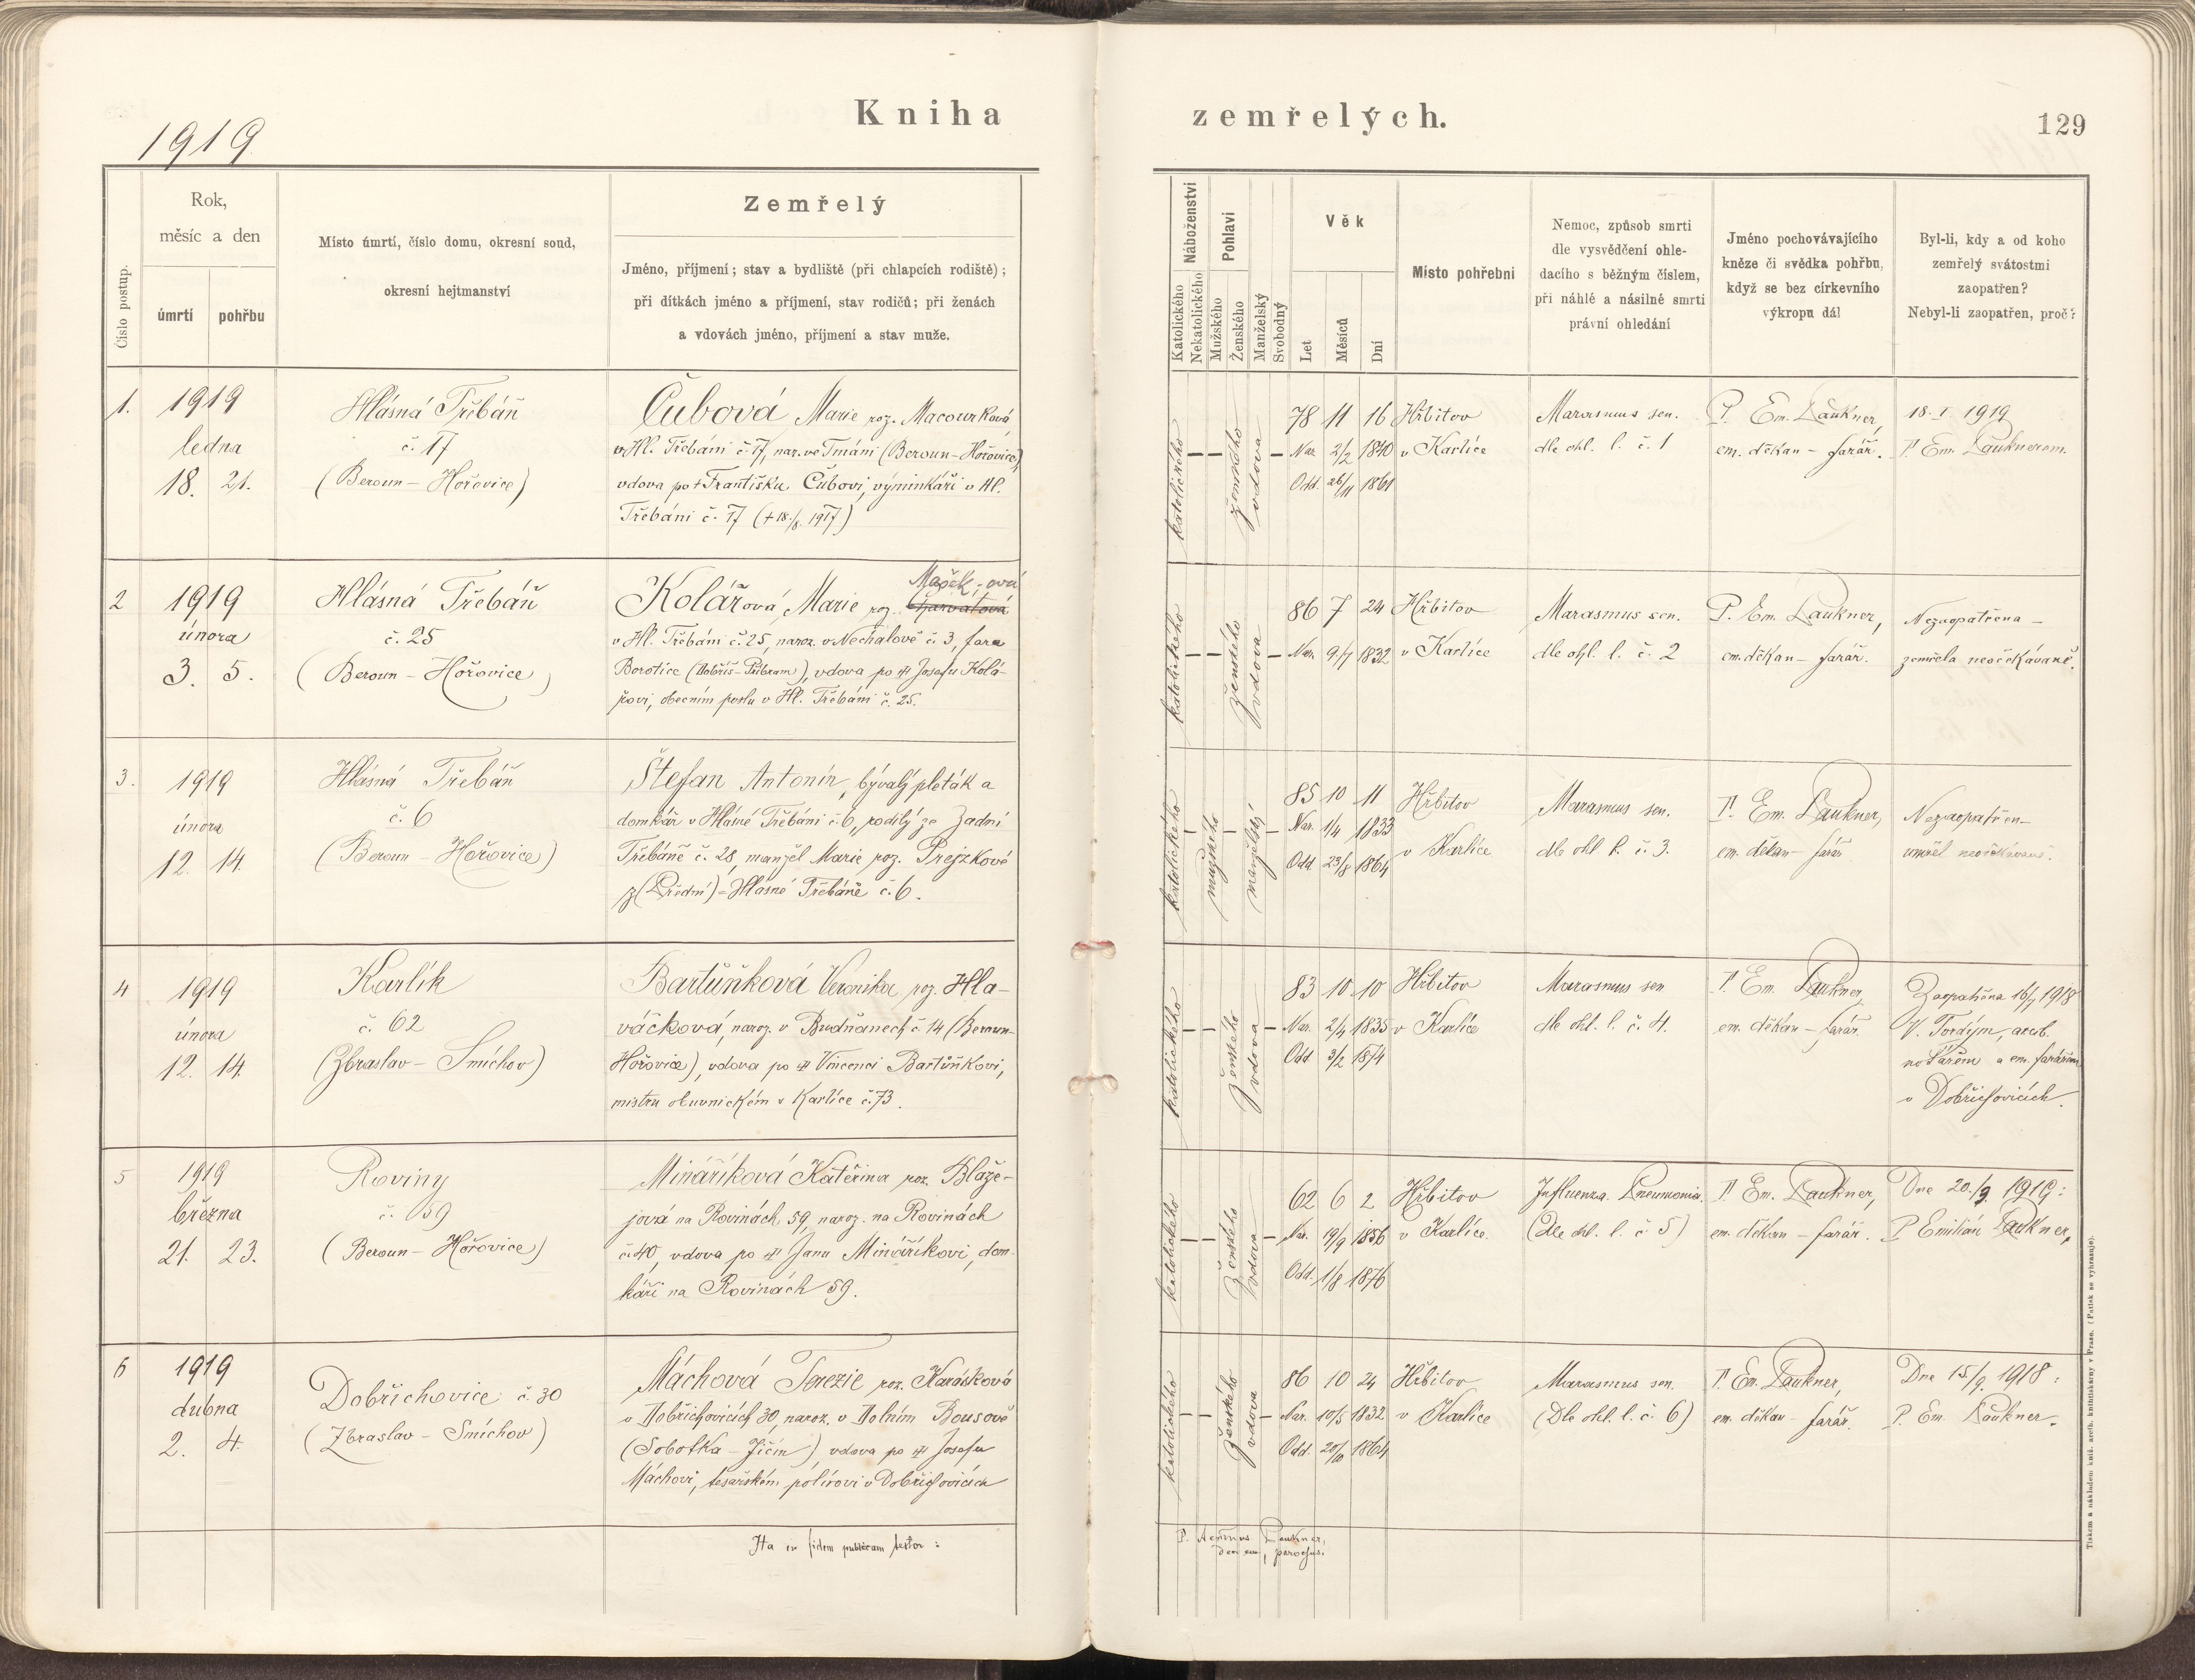 Kniha
zemřelých.
129
1919
Číslo postup.
Rok,
měsíc a den
úmrtí
pohřbu
Místo úmrtí, číslo domu, okresní soud,
okresní hejtmanství
Zemřelý
Jméno, příjmení; stav a bydliště (při chlapcích rodiště);
při dítkách jméno a příjmení, stav rodičů; při ženách
a vdovách jméno, příjmení a stav muže.
Náboženství
Katolického
Nekatolického
Pohlaví
Mužského
Ženského
Manželský
Svobodný
Věk
Let
Měsíců
Dní
Místo pohřební
Nemoc, způsob smrti
dle vysvědčení ohle-
dacího s běžným číslem,
při náhlé a násilné smrti
právní ohledání
Jméno pochovávajícího
kněze či svědka pohřbu,
když se bez církevního
výkropu dál
Byl-li, kdy a od koho
zemřelý svátostmi
zaopatřen?
Nebyl-li zaopatřen, proč?
1.
1919
ledna
18. 21.
Hlásná Třebáň
č. 17
(Beroun – Hořovice)
Čubová Marie roz. Macourková,
v Hl. Třebáni č. 17, nar. ve Tmáni (Beroun–Hořovice),
vdova po + Františku Čubovi, výminkáři v Hl.
Třebáni č. 17 (+ 18./8. 1917)
katolického
— —
ženského
vdova
—
78 11 16
Nar. 2/2 1840
Odd. 26/11 1861
Hřbitov
v Karlíce
Marasmus sen.
dle ohl. l. č. 1
P. Em. Laukner,
em. děkan – farář.
18. I. 1919
P. Em. Lauknerem.
2
1919
února
3. 5.
Hlásná Třebáň
č. 25
(Beroun – Hořovice)
Mašek-ová
Kolářová Marie roz. Charvatová
v Hl. Třebáni č. 25, naroz. v Nechalově č. 3, fara
Borotice (Dobříš–Příbram), vdova po + Josefu Kolá-
řovi, obecním poslu v Hl. Třebáni č. 25.
katolického
— —
ženského
vdova
—
86 7 24
Nar. 9/7 1832
Hřbitov
v Karlíce
Marasmus sen.
dle ohl. l. č. 2
P. Em. Laukner,
em. děkan – farář.
Nezaopatřena –
zemřela neočekávaně.
3.
1919
února
12. 14.
Hlásná Třebáň
č. 6
(Beroun – Hořovice)
Štefan Antonín, bývalý pleták a
domkář v Hlásné Třebáni č. 6, rodilý ze Zadní
Třebáně č. 28, manžel Marie roz. Prejzkové
z (Přední) = Hlásné Třebáně č. 6.
katolického
—
mužského
—
manželský
—
85 10 11
Nar. 1/4 1833
Odd. 23/8 1864
Hřbitov
v Karlíce
Marasmus sen.
dle ohl. l. č. 3.
P. Em. Laukner,
em. děkan – farář
Nezaopatřen –
umřel neočekávaně.
4
1919
února
12. 14.
Karlík
č. 62
(Zbraslav – Smíchov)
Bartůňková Veronika roz. Hla-
váčková, naroz. v Budňanech č. 14 (Beroun-
Hořovice), vdova po + Vincenci Bartůňkovi,
mistru obuvnickém v Karlíce č. 73.
katolického
— —
ženského
vdova
—
83 10 10
Nar. 2/4 1835
Odd. 3/2 1874
Hřbitov
v Karlíce
Marasmus sen
dle ohl. l. č. 4.
P. Em. Laukner,
em. děkan – farář.
Zaopatřena 16/7 1918
V. Tordým, arcib.
notářem a em. farářem
v Dobřichovicích.
5
1919
března
21. 23.
Roviny
č. 59
(Beroun – Hořovice)
Mináříková Kateřina roz. Blaže-
jová na Rovinách 59, naroz. na Rovinách
č. 40, vdova po + Janu Mináříkovi, dom-
káři na Rovinách 59.
katolického
— —
ženského
vdova
—
62 6 2
Nar. 19/9 1856
Odd. 1/8 1876
Hřbitov
v Karlíce.
Influenza. Pneumonia.
(Dle ohl. l. č. 5)
P. Em. Laukner,
em. děkan – farář.
Dne 20./3. 1919:
P. Emilián Laukner.
6
1919
dubna
2. 4.
Dobřichovice č. 30
(Zbraslav – Smíchov)
Máchová Terezie roz. Karásková
v Dobřichovicích 30, naroz. v Dolním Bousově
(Sobotka – Jičín) vdova po + Josefu
Máchovi, tesařském polírovi v Dobřichovicích
katolického
— —
ženského
vdova
—
86 10 24
Nar. 10/5 1832
Odd. 20/10 1864
Hřbitov
v Karlíce
Marasmus sen.
(Dle ohl. l. č. 6)
P. Em. Laukner,
em. děkan – farář.
Dne 15./9. 1918:
P. Em. Laukner.
Ita in fidem publicam testor:
P. Laukner,
parochus.
Tiskem a nákladem kníž. arcib. knihtiskárny v Praze. (Patisk se vyhrazuje).